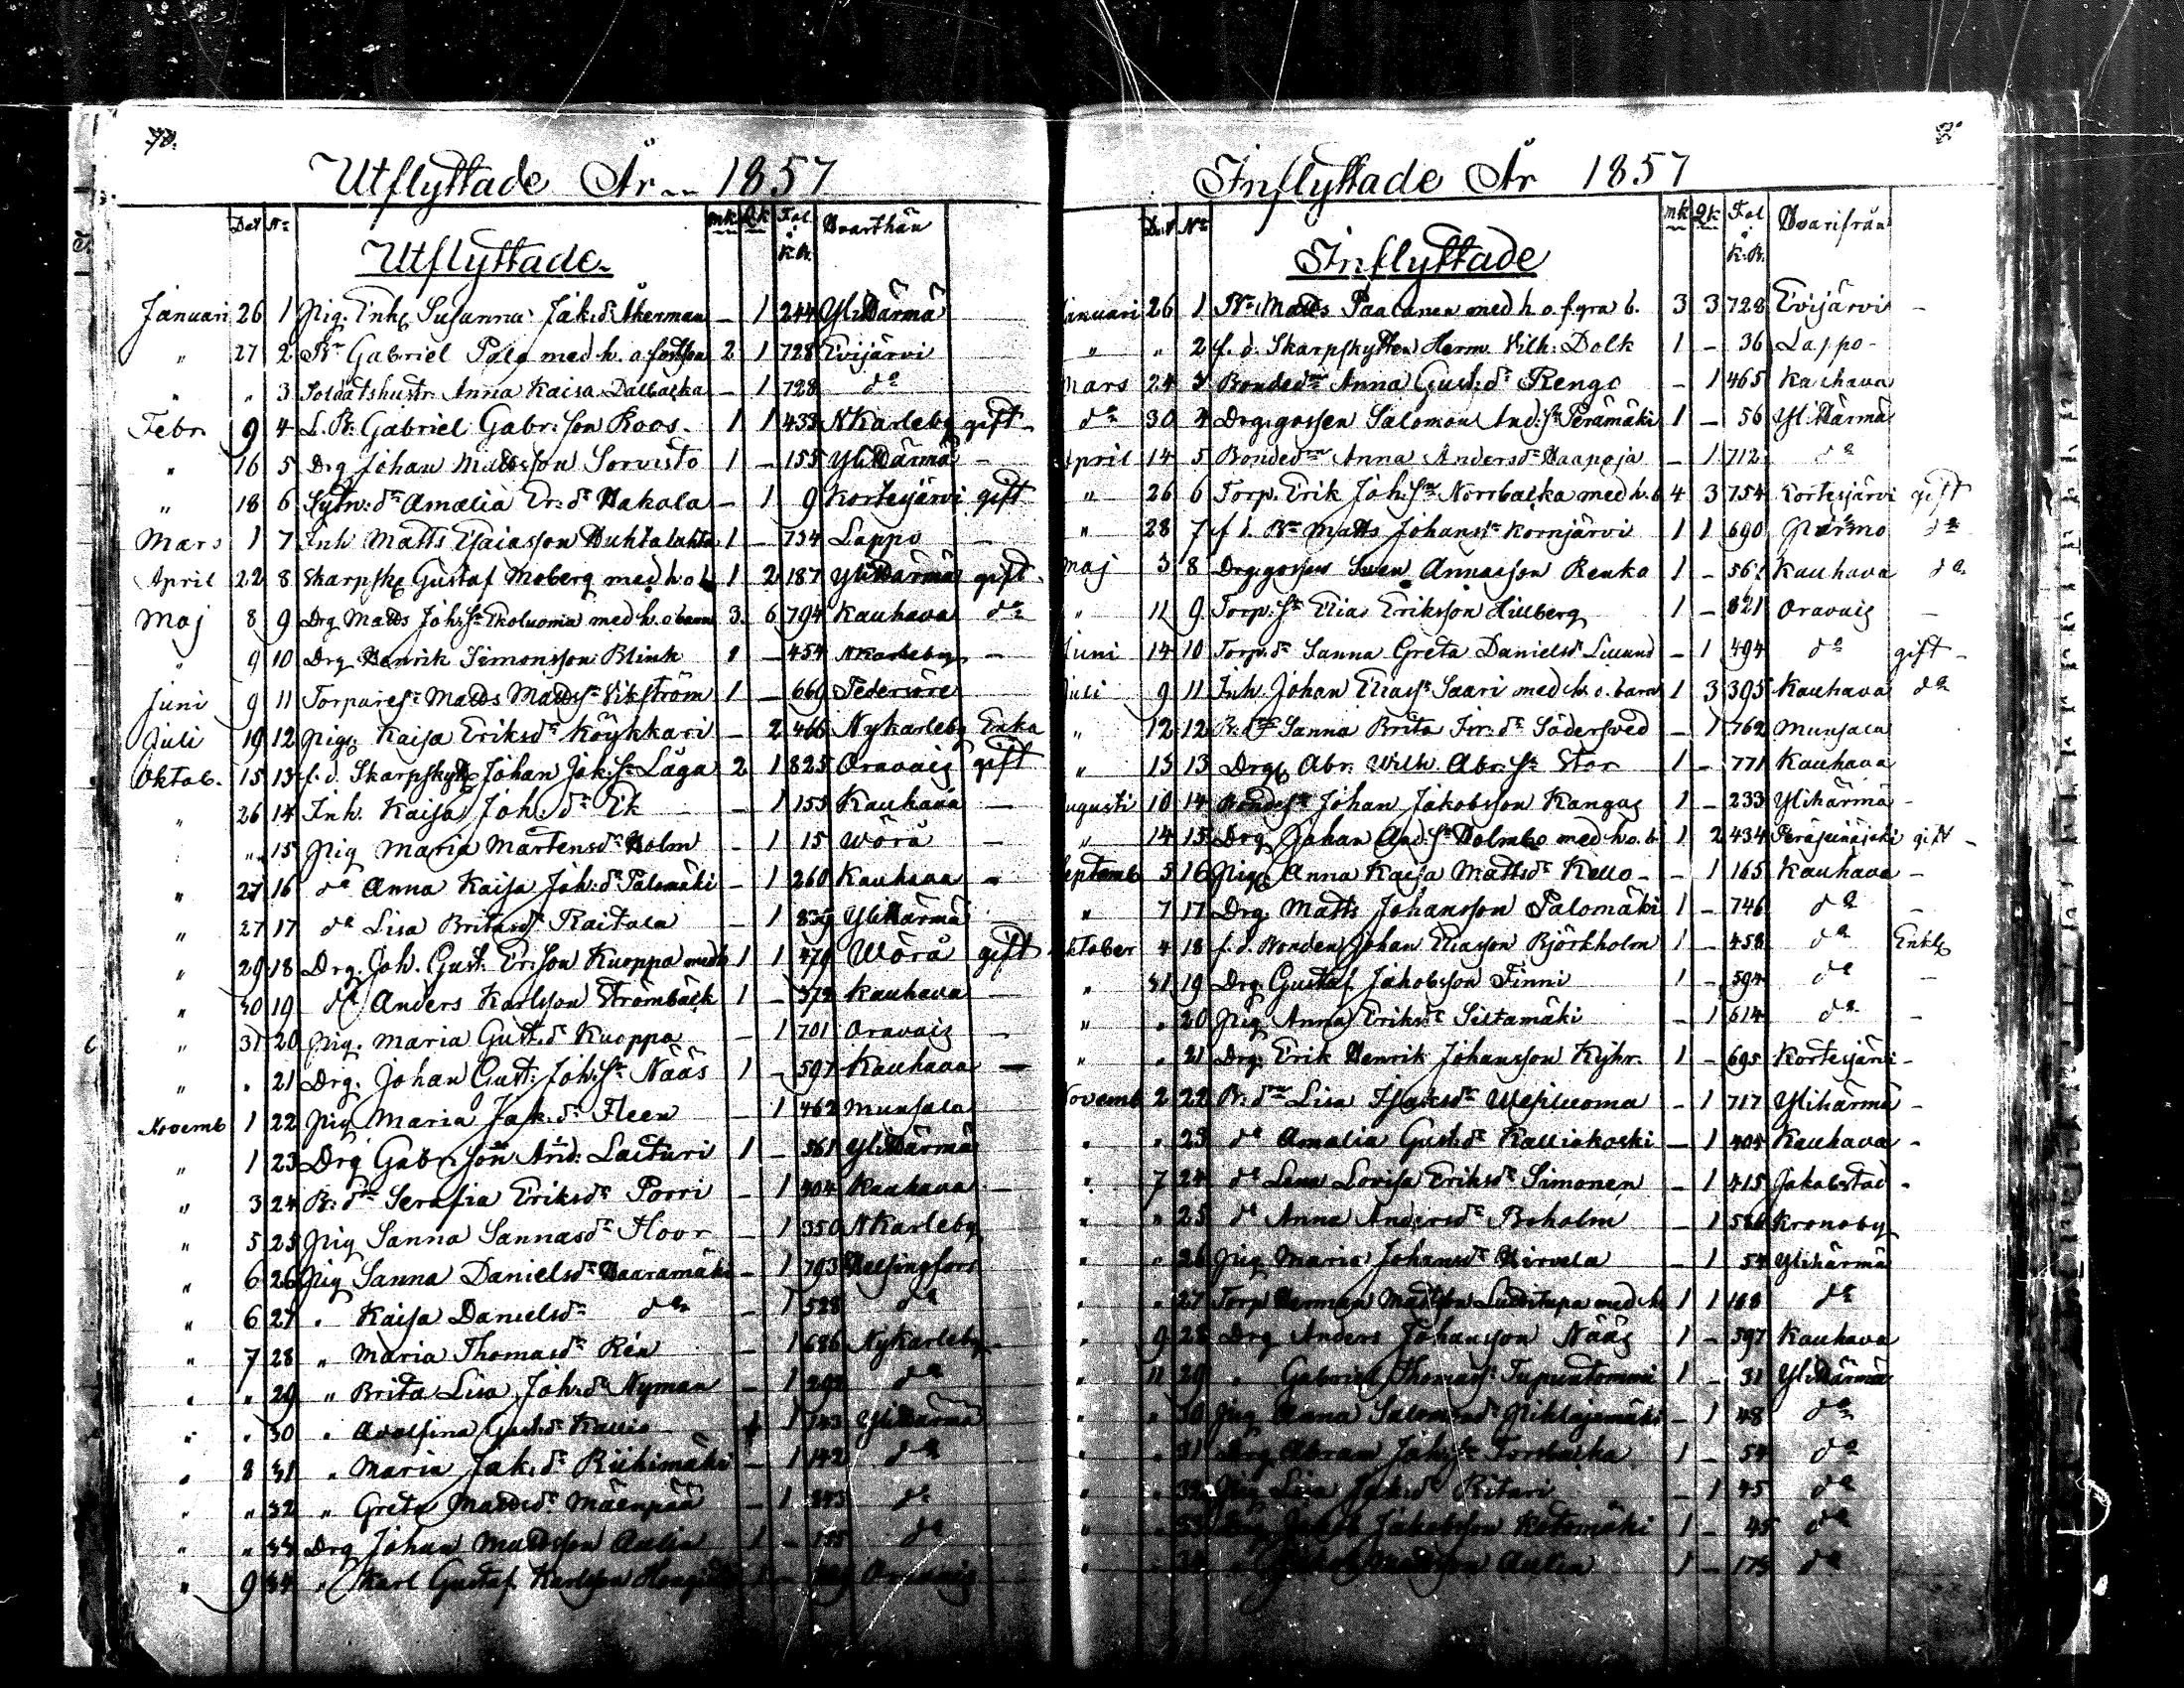 Utflyttade År 1857
Dat No mk Qk Fol. i K.B. Hvarthän
Utflyttade
Januari 26 1 Pig. Enk. Susanna Jak:dr Åkerman – 1 244 YliHärmä
" 27 2 Br Gabriel Palo med h. o. fostson 2 1 728 Evijärvi
" " 3 Soldatshustr. Anna Kaisa Dalbacka – 1 728 do
Febr. 9 4 L. B. Gabriel Gabr:son Roos 1 1 433 NKarleby gift
" 16 5 Drg Johan Mattsson Sorvisto 1 – 155 YliHärmä –
" 18 6 Sytn:dr Amalia Er:dr Hakala – 1 9 Kortesjärvi gift
Mars 1 7 Inh Matts Esaiasson Huhtalahto 1 – 734 Lappo –
April 22 8 Skarpsk Gustaf Moberg med h o b 1 2 187 YliHärmä gift
Maj 8 9 Drg Matts Joh:Sn Ekoluoma med h. o barn 3 6 794 Kauhava do
" 9 10 Drg Henrik Simonsson Blink 1 – 454 NKarleby –
Juni 9 11 Torpares: Matts Matts:n Vikström 1 – 660 Pedersöre
Juli 19 12 Pig. Kaisa Eriksdr Köykkari – 2 466 Nykarleby Enka
Oktob. 15 13 f. d. Skarpsky Johan Jak:Sn Låga 2 1 825 Oravais gift
" 26 14 Inh. Kaisa Joh:dr Ek – 1 155 Kauhava –
" " 15 Pig Maria Mårtensdr Holm – 1 15 Wörå –
" 27 16 do Anna Kaisa Joh:dr Palomäki – 1 260 Kauhava –
" 27 17 do Lisa Britasdr Raitala – 1 839 YliHärmä
" 29 18 Drg. Joh. Gust. Er:son Kuoppa med h 1 1 479 Wörå gift
" 30 19 do Anders Karlsson Strömbäck 1 – 372 Kauhava –
" 31 20 Pig. Maria Gust.dr Kuoppa – 1 701 Oravais –
" " 21 Drg. Johan Gust: Joh:Sn Nääs 1 – 597 Kauhava –
Novemb 1 22 Pig Maria Jak.dr Fleen – 1 462 Munsala
" 1 23 Drg Gabr:son And: Laituri 1 – 561 YliHärmä
" 3 24 B:dr Serafia Eriksdr Porri – 1 404 Kauhava
" 5 25 Pig Sanna Sannasdr Floor – 1 350 NKarleby
" 6 26 Pig Sanna Danielsdr Haaramäki – 1 793 Helsingfors
" 6 27 " Kaisa Danielsdr do – 1 528 do
" 7 28 " Maria Thomasdr Rén – 1 686 Nykarleby
" " 29 " Brita Lisa Joh:dr Nyman – 1 292 do
" " 30 " Adolfina Gustdr Kallio 1 143 YliHärmä
" 8 31 " Maria Jak.dr Riihimäki – 1 142 do
" " 32 " Greta Mattsdr Mäenpää – 1 do
" " 33 Drg Johan Mattsson Aulin 1 – do
" 9 34 " Karl Gustaf Karlsson Oravais
Inflyttade År 1857
Dat No mk Qk Fol i K.B. Hvarifrån
Inflyttade
Januari 26 1 Br Matts Paalanen med h. o. fyra b. 3 3 728 Evijärvi –
" " 2 f. d. Skarpskytten Herm. Vilh. Dolk 1 – 36 Lappo –
Mars 24 3 Bondedr Anna Gust:dr Rengo – 1 465 Kauhava
do 30 4 Drg:gossen Salomon And:Sn Perämäki 1 – 56 YliHärmä
April 14 5 Bondedr Anna Andersdr Haapoja – 1 712 do
" 26 6 Torp. Erik Joh:Sn Norrbacka med h. b 4 3 754 Kortesjärvi gift
" 28 7 f d. Br Matts Johanssn Kornjärvi 1 1 690 Purmo do
Maj 3 8 Drg:gossen Sven Annasson Renko 1 – 561 Kauhava do
" 11 9 Torp:Sn Elias Eriksson Hillberg 1 – 821 Oravais –
Juni 14 10 Torp.dr Sanna Greta Danielsdr Lillund – 1 494 do gift
Juli 9 11 Inh. Johan Eliassn Saari med h. o. barn 1 3 395 Kauhava do
" 12 12 B.dr Sanna Brita Jir.dr Södersved – 1 762 Munsala
" 13 13 Drg Abr. Wilh. Abr:Sn Stor 1 – 771 Kauhava
Augusti 10 14 Bondesn Johan Jakobsson Kangas 1 – 233 Ylihärmä –
" 14 15 Drg. Johan And:Sn Holmbo med h o. b 1 2 434 Peräseinäjoki gift
Septemb 5 16 Pig. Anna Kaisa Mattsdr Kello – 1 165 Kauhava –
" 7 17 Drg. Matts Johansson Palomäki 1 – 746 do –
Oktober 4 18 f. d. Bonden Johan Eliasson Björkholm 1 – 458 do Enkl
" 31 19 Drg Gustaf Jakobsson Finni 1 – 594 do –
" " 20 Pig Anna Eriksdr Siltamäki – 1 614 do –
" " 21 Drg. Erik Henrik Johansson Kyhr. 1 – 695 Kortesjärvi –
Novemb 2 22 B:dr Lisa Isaksdr Uusiluoma – 1 717 Ylihärmä –
" " 23 do Amalia Gust:dr Kalliokoski – 1 405 Kauhava –
" 7 24 do Lena Lovisa Eriksdr Simonen – 1 415 Jakobstad –
" " 25 do Anna Andersdr Boholm – 1 Kronoby
" " 26 Pig Maria Johansdr Hirvela – 1 54 Ylihärmä
" " 27 Torp Herman Mattsson Luhtitupa med h 1 1 168 do
" 9 28 Drg Anders Johansson Nääs 1 – 597 Kauhava
" 11 29 " Gabriel Thomassn 1 – 31 YliHärmä
" " 30 Pig Anna Salomonsdr – 1 48 do
" " 31 Drg Abram Jak:Sn Torrbacka 1 – 54 do
" " 32 Pig Lisa Jak:dr Ritari – 1 45 do
" " 33 Drg Jakob Jakobsson Ketomäki 1 – 45 do
" " 34 Mattsson Aulin 1 – 175 do